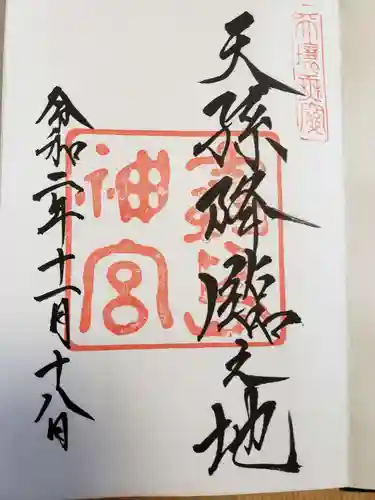 天孫降臨之地
霧島
神宮
令和二年十一月十八日